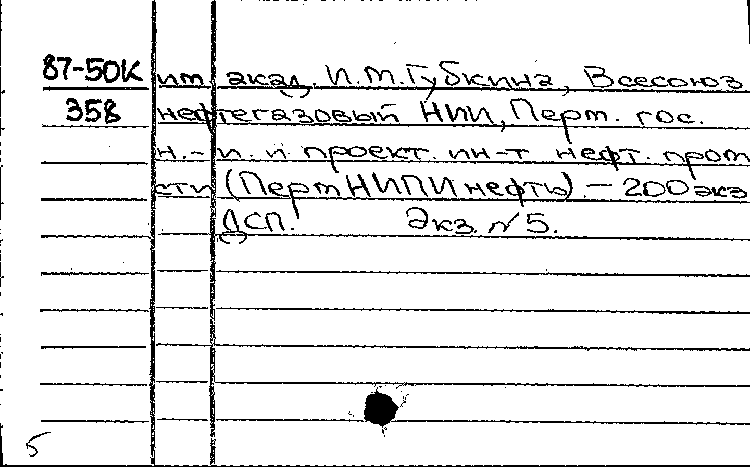 87-50К им. акад. И.М.Губкина, Всесоюз
358 нефтегазовый НИИ, Перм. гос.
н.-и. и проект. ин-т нефт. пром
сти (ПермНИПИнефть).- 200 экз
ДСП. Экз. №5.
5